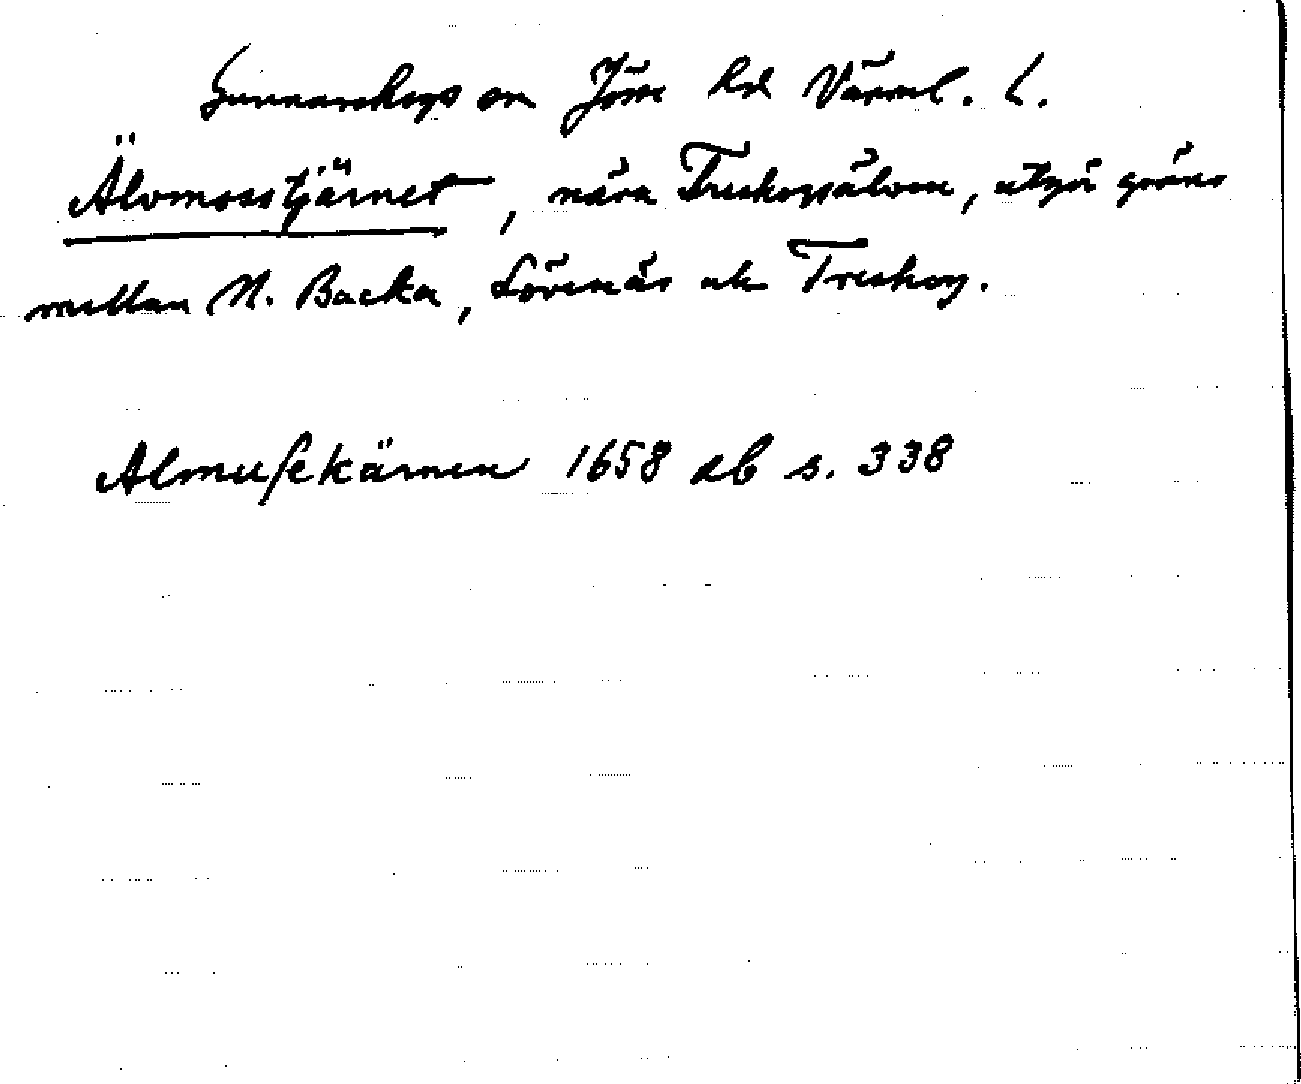 Gunnarskogs sn Jösse hd Värml. L.
Älvmosstjärnet, nära Treskogsälven, utgör gräns
mellan N. Backa, Lövenäs och Treskog.
Almusekärnen 1658 db s. 338